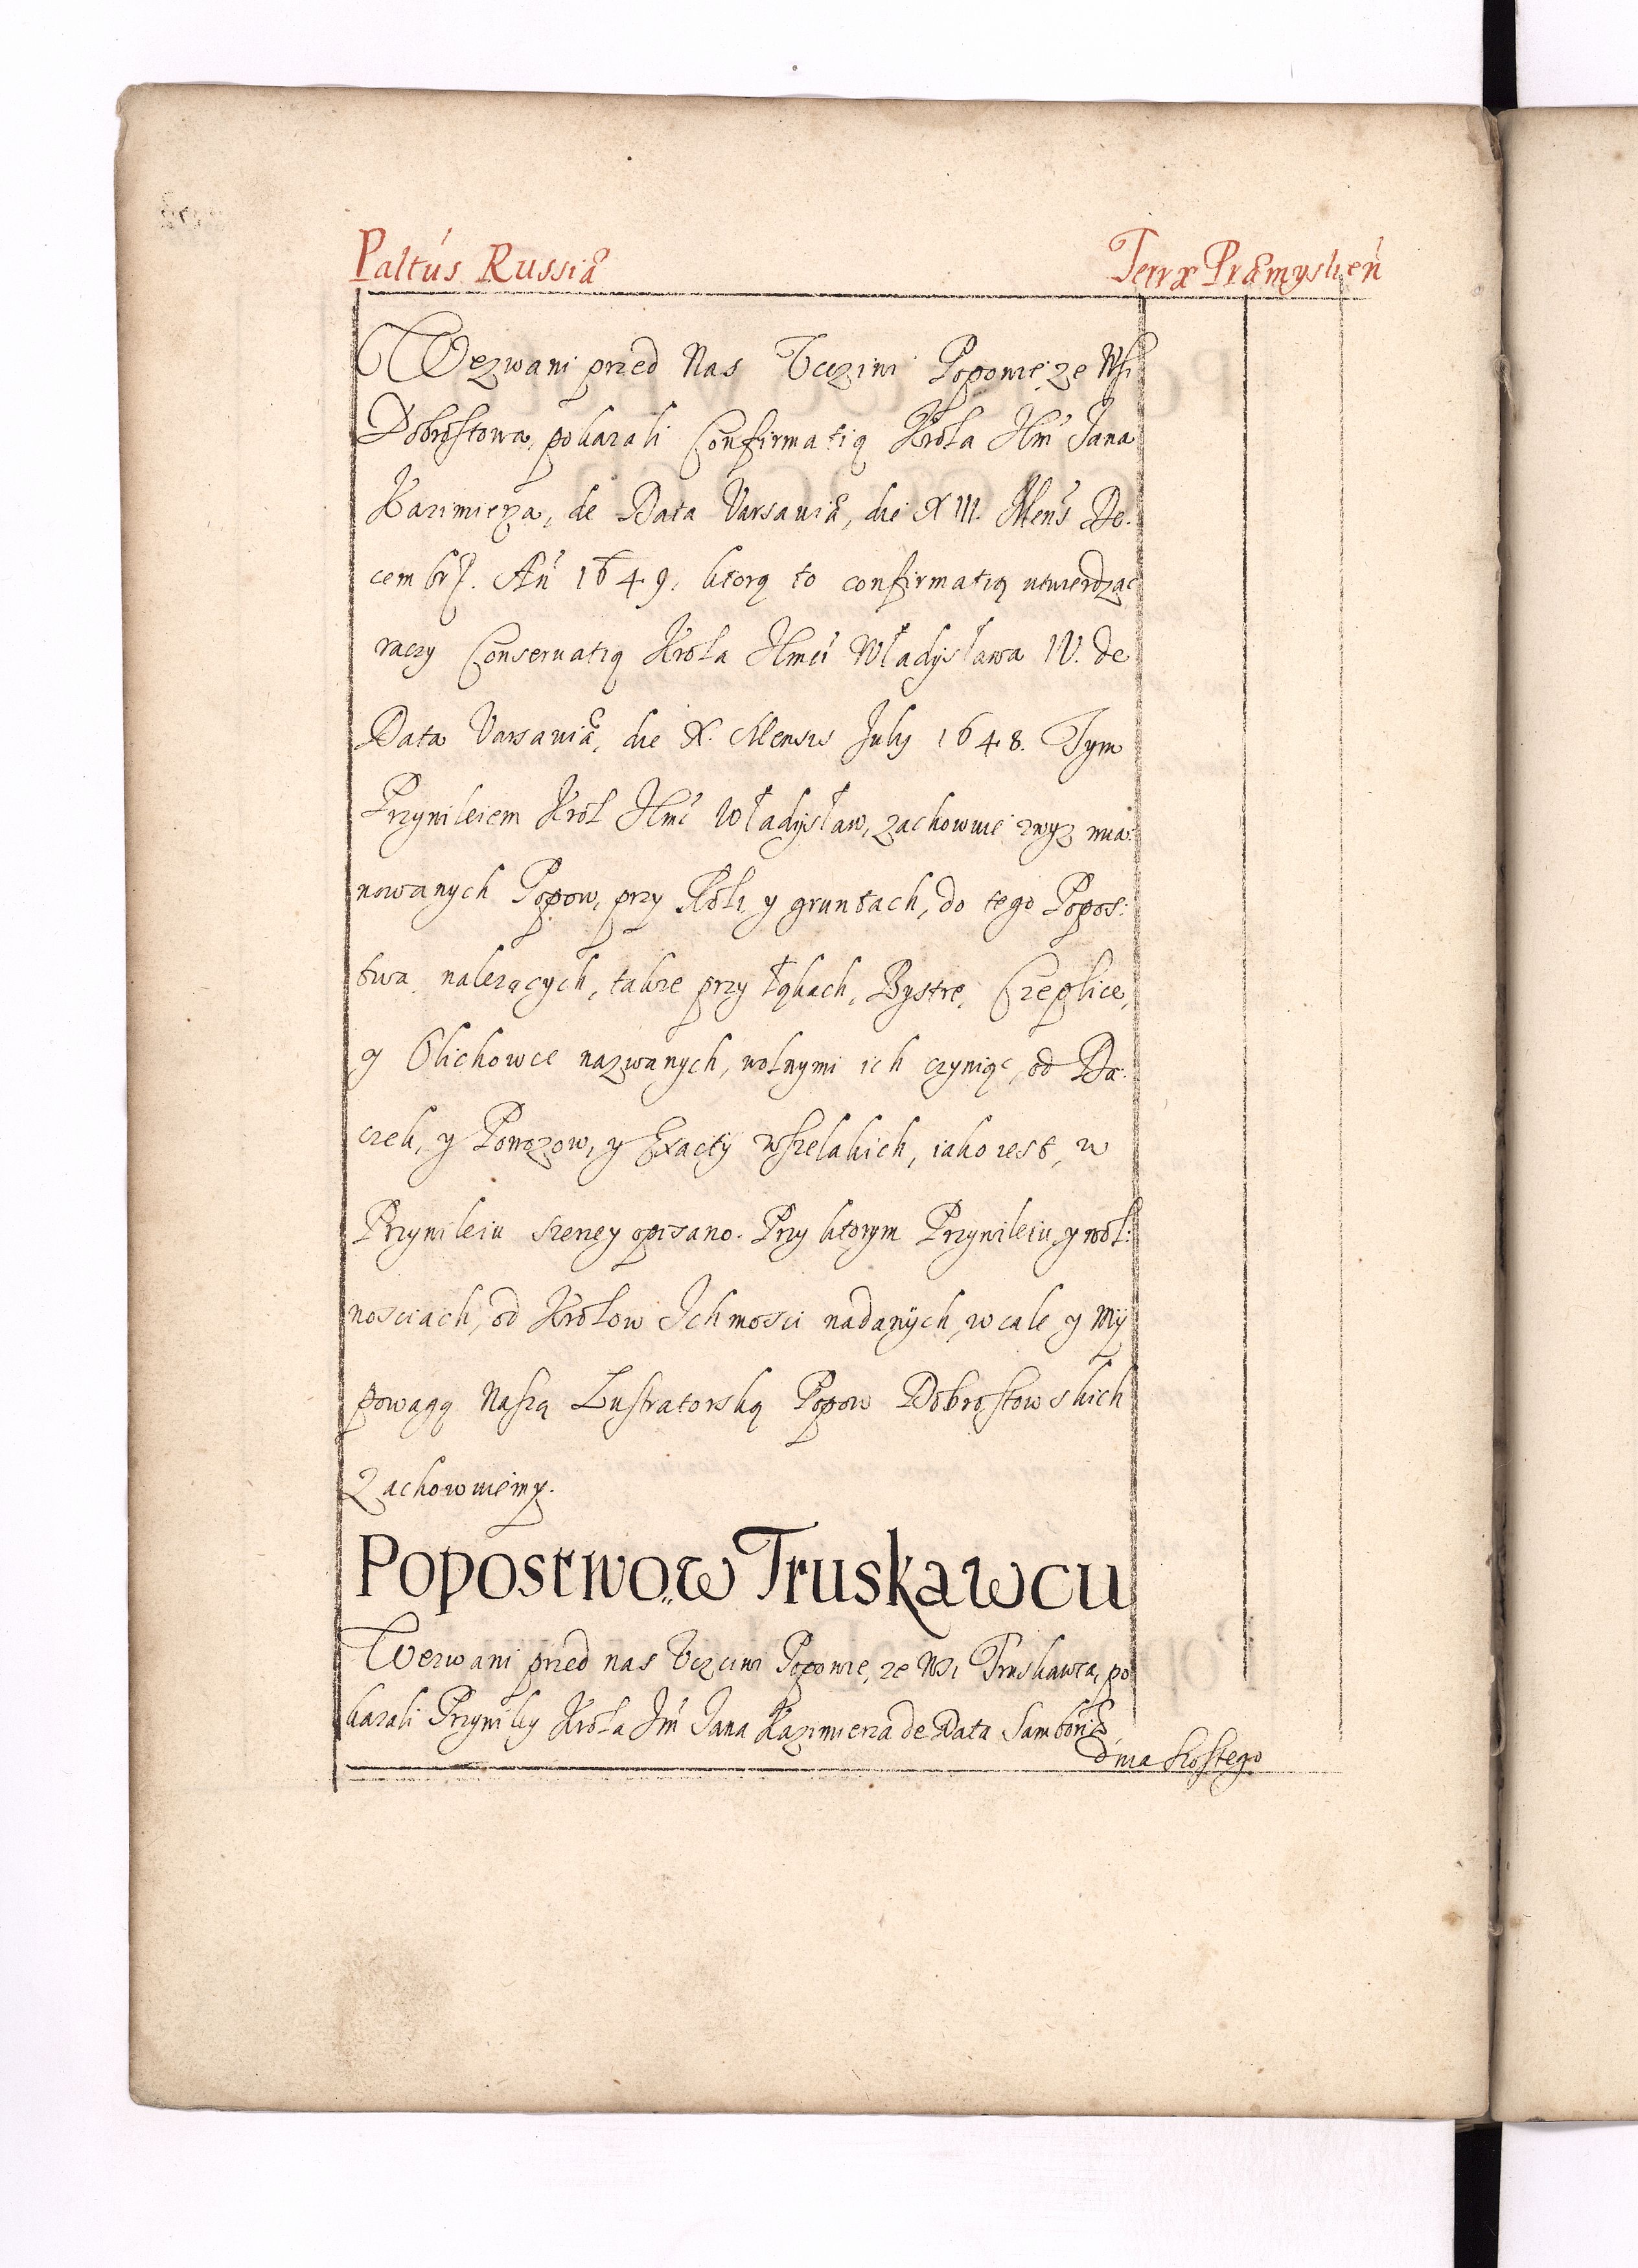 Paltús Russiæ Terræ Præmysłień
Wezwani przed Nas Uczciwi Popowie, ze Wsi
Dobrostowa, pokazali Confirmatią Krola Jḿ Jana
Kazimierza, de Data Varsaviæ, die XIII. Mens̃ De:
cembrj. Ań 1649. ktorą to confirmatią utwierdzać
raczy Conservatią Krola Jmći Władysława IV. de
Data Varsaviæ, die X. Mensis July 1648. Tym
Przywileiem Krol Jmć Władysław, zachowuie zwyz mia:
nowanych Popow, przy Roli, y gruntach, do tego Popos:
twa, nalezących, takze przy łąkach, Bystre, Czeplice,
y Olichowce nazwanych, wolnymi ich czyniąc, od Da:
czek, y Powozow, y Exacty wszelakich, iako iest, w
Przywileiu szerzey opisano. Przy ktorym Przywileiu, y wol:
nosciach, od Krolow Ichmosci nadanych, wcale y My
powagą Naszą Lustratorską Popow Dobrostowskich
Zachowuiemy.
Popostwo w Truskawcu
Wezwani przed nas Uczciwi Popowie, ze Wsi Truskawca, po
kazali Przywiley Krola Jḿ Jana Kazimierza de Data Samboriæ,
dnia szostego